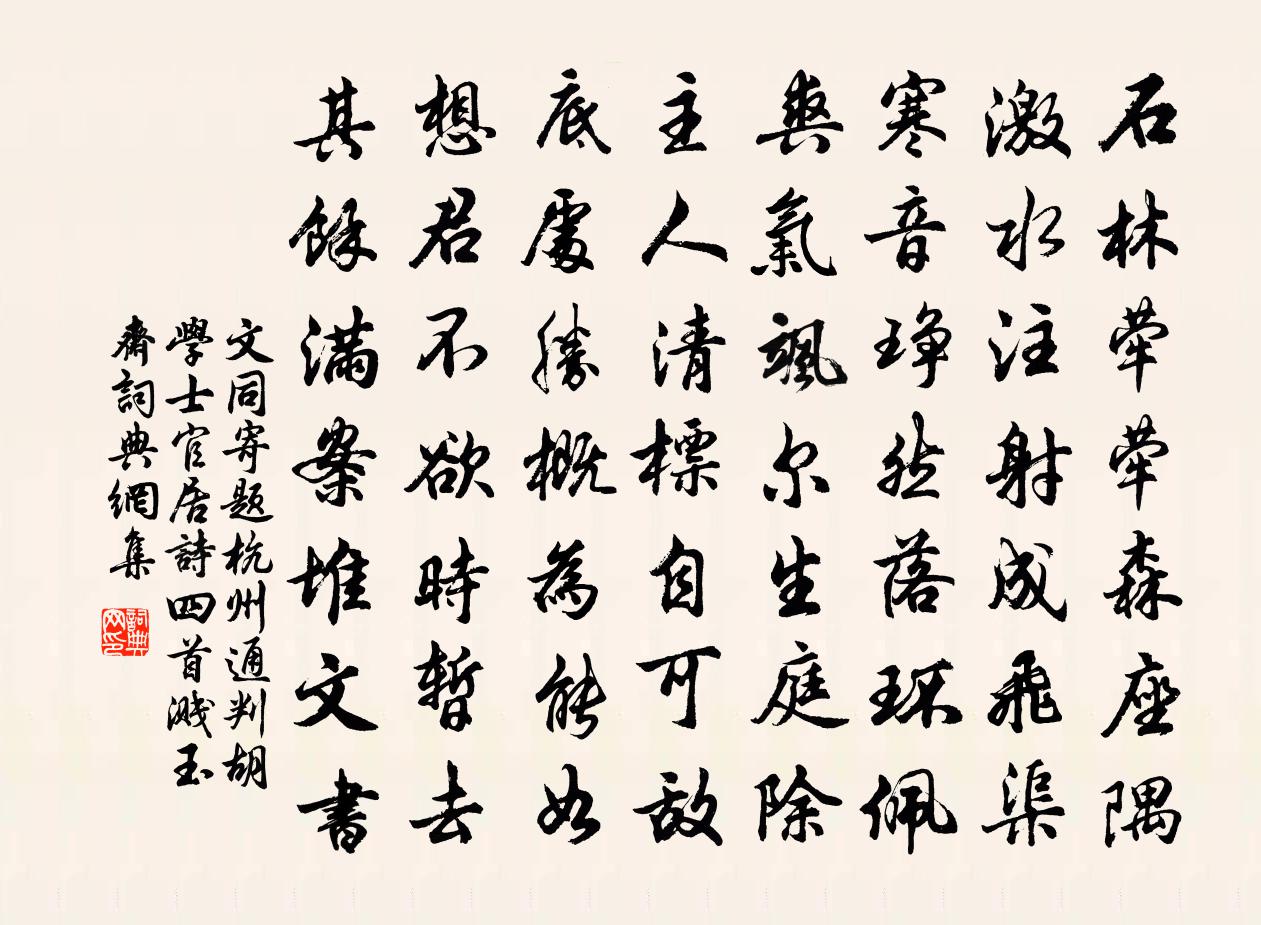 石林荦荦森座隅
激水注射成飛渠
寒音琤然落环佩
爽氣颯尔生庭除
主人清標自可敌
底處勝概為能如
想君不欲時暫去
其餘滿案堆文書
文同寄題杭州通判胡
學士官居詩四首濺玉
齋詞典網集
詞典网印